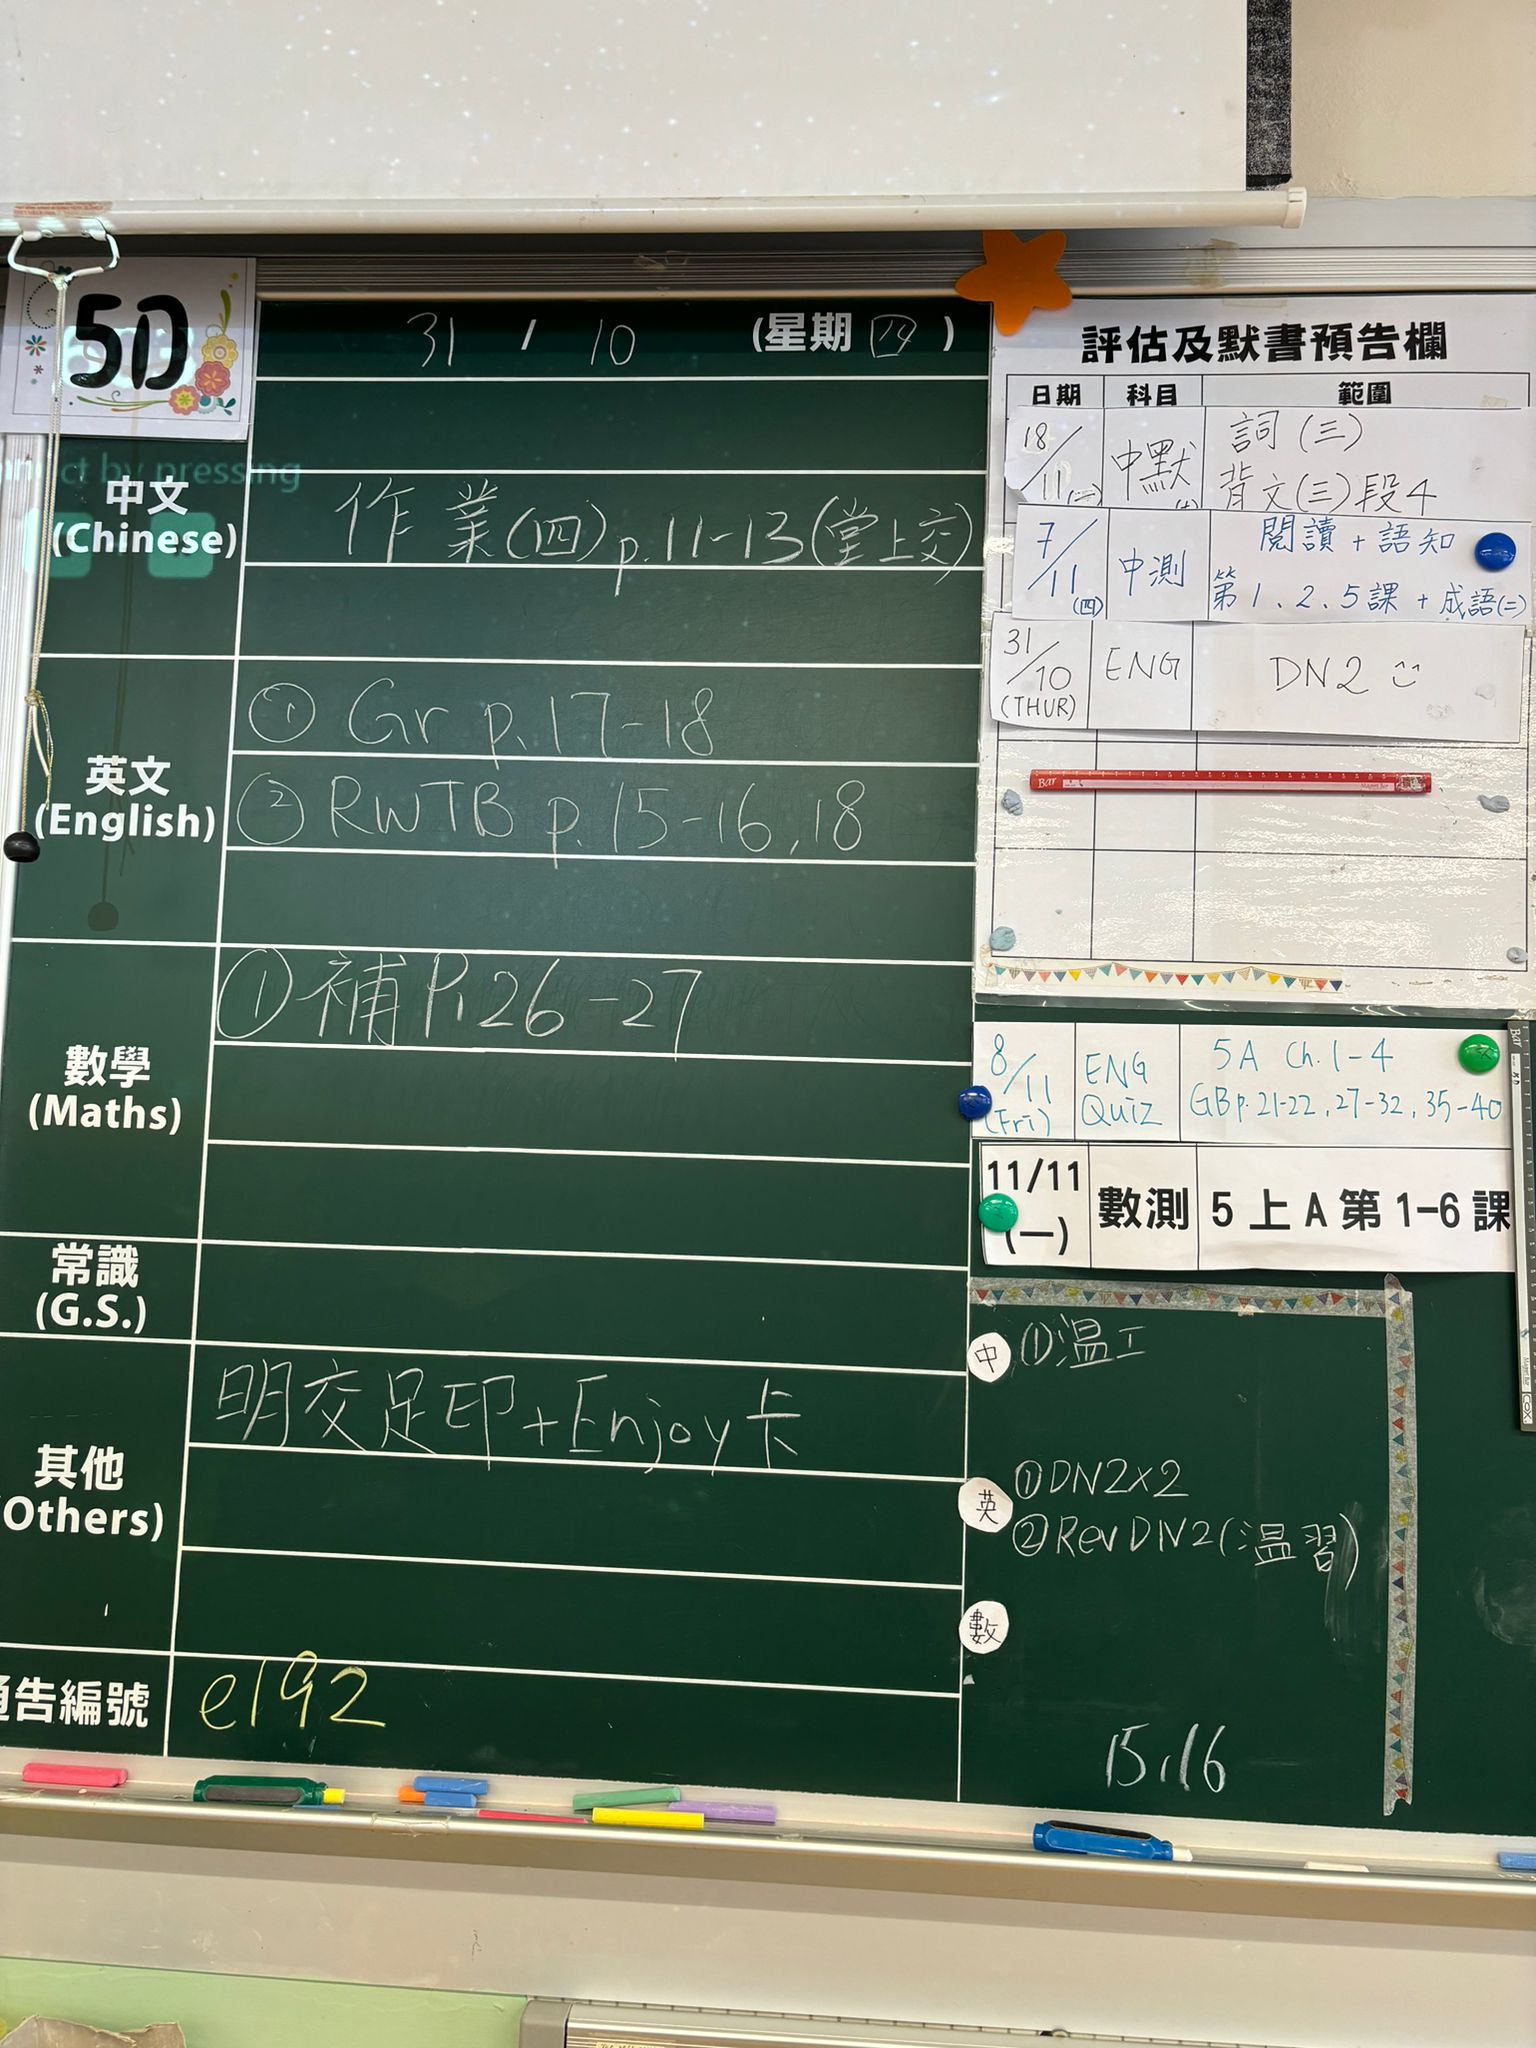 5D
31 / 10 (星期 四 )
中文
(Chinese)
作業(四) p.11-13(堂上交)
英文
(English)
① Gr p.17-18
② RWTB p.15-16,18
數學
(Maths)
① 補 P.26-27
常識
(G.S.)
其他
(Others)
明交足印+Enjoy卡
通告編號
e192
評估及默書預告欄
日期 科目 範圍
18/11 中默 詞(三)
背文(三)段4
7/11(四) 中測 閱讀+語知
第1、2、5課+成語(二)
31/10 (THUR) ENG DN2
8/11 (Fri) ENG Quiz 5A Ch.1-4
GB p.21-22,27-32,35-40
11/11 (一) 數測 5上A第1-6課
中 ①溫工
英 ①DN2x2
②Rev DN2(溫習)
數
15,16
Bar